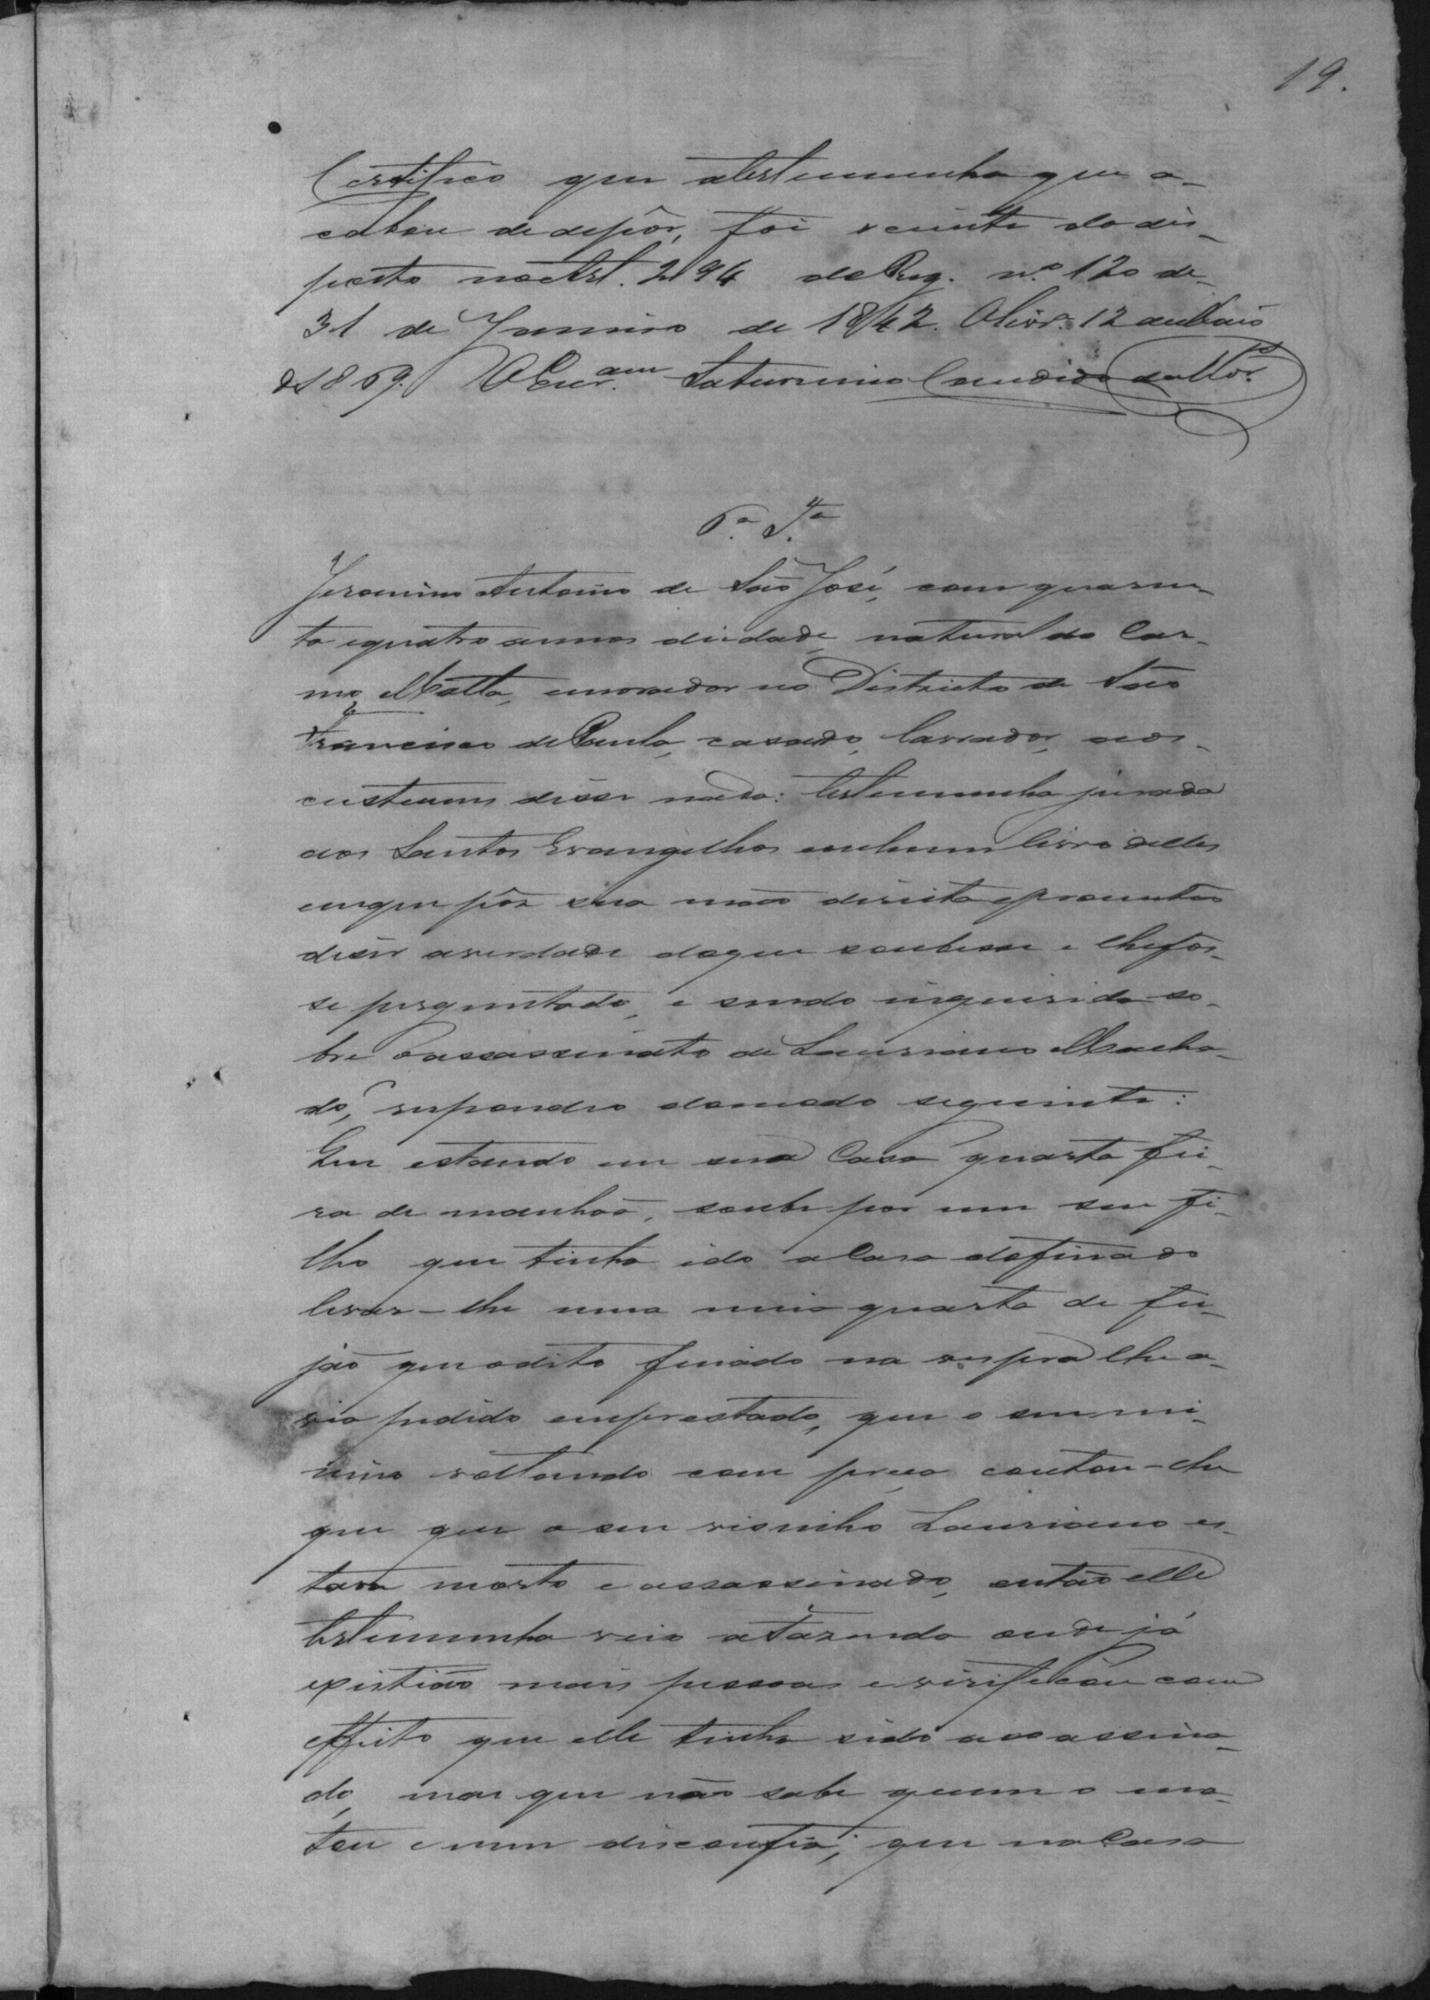 19.
Certifico que atestemunha que a-
cabou de depôr, foi sciente do dis-
posto no Art. 294 do Reg. nº 120 de
31 de Janeiro de 1842. Olivrª 12 de Maio
de 1869. O Escr.am Saturnino Candido da
6.ª T.ª
Jeronimo Antonio de São José, com quaren-
ta equatro annos deidade, natural do Car-
mo da Matta, morador no Districto de São
Francisco de Paula, casado, lavrador, aos
custumes disse nada: testemunha jurada
aos Santos Evangelhos emhum livro delles
emque pôz sua mão direita eprometteo
dizer averdade doque soubesse e lhefos-
se perguntado, e sendo inquirida so-
bre o assassinato de Lauriano Macha-
do, respondeo domodo seguinte:
Que estando em sua Casa quarta fei-
ra de manhãa, soube por um seu fi-
lho que tinha ido a Casa dofinado
levar-lhe uma meia quarta de fei-
jão que odito finado na vespora lhe a-
via pedido emprestado, que o seu me-
nino voltando com preça contou-lhe
que que o seu visinho Lauriano es-
tava morto e assassinado, então elle
testemunha veio a Fazenda onde já
existião mais pessoas e virificou com
effeito que elle tinha sido assassina-
do, mas que não sabe quem o ma-
tou e nem disconfia; que na Casa